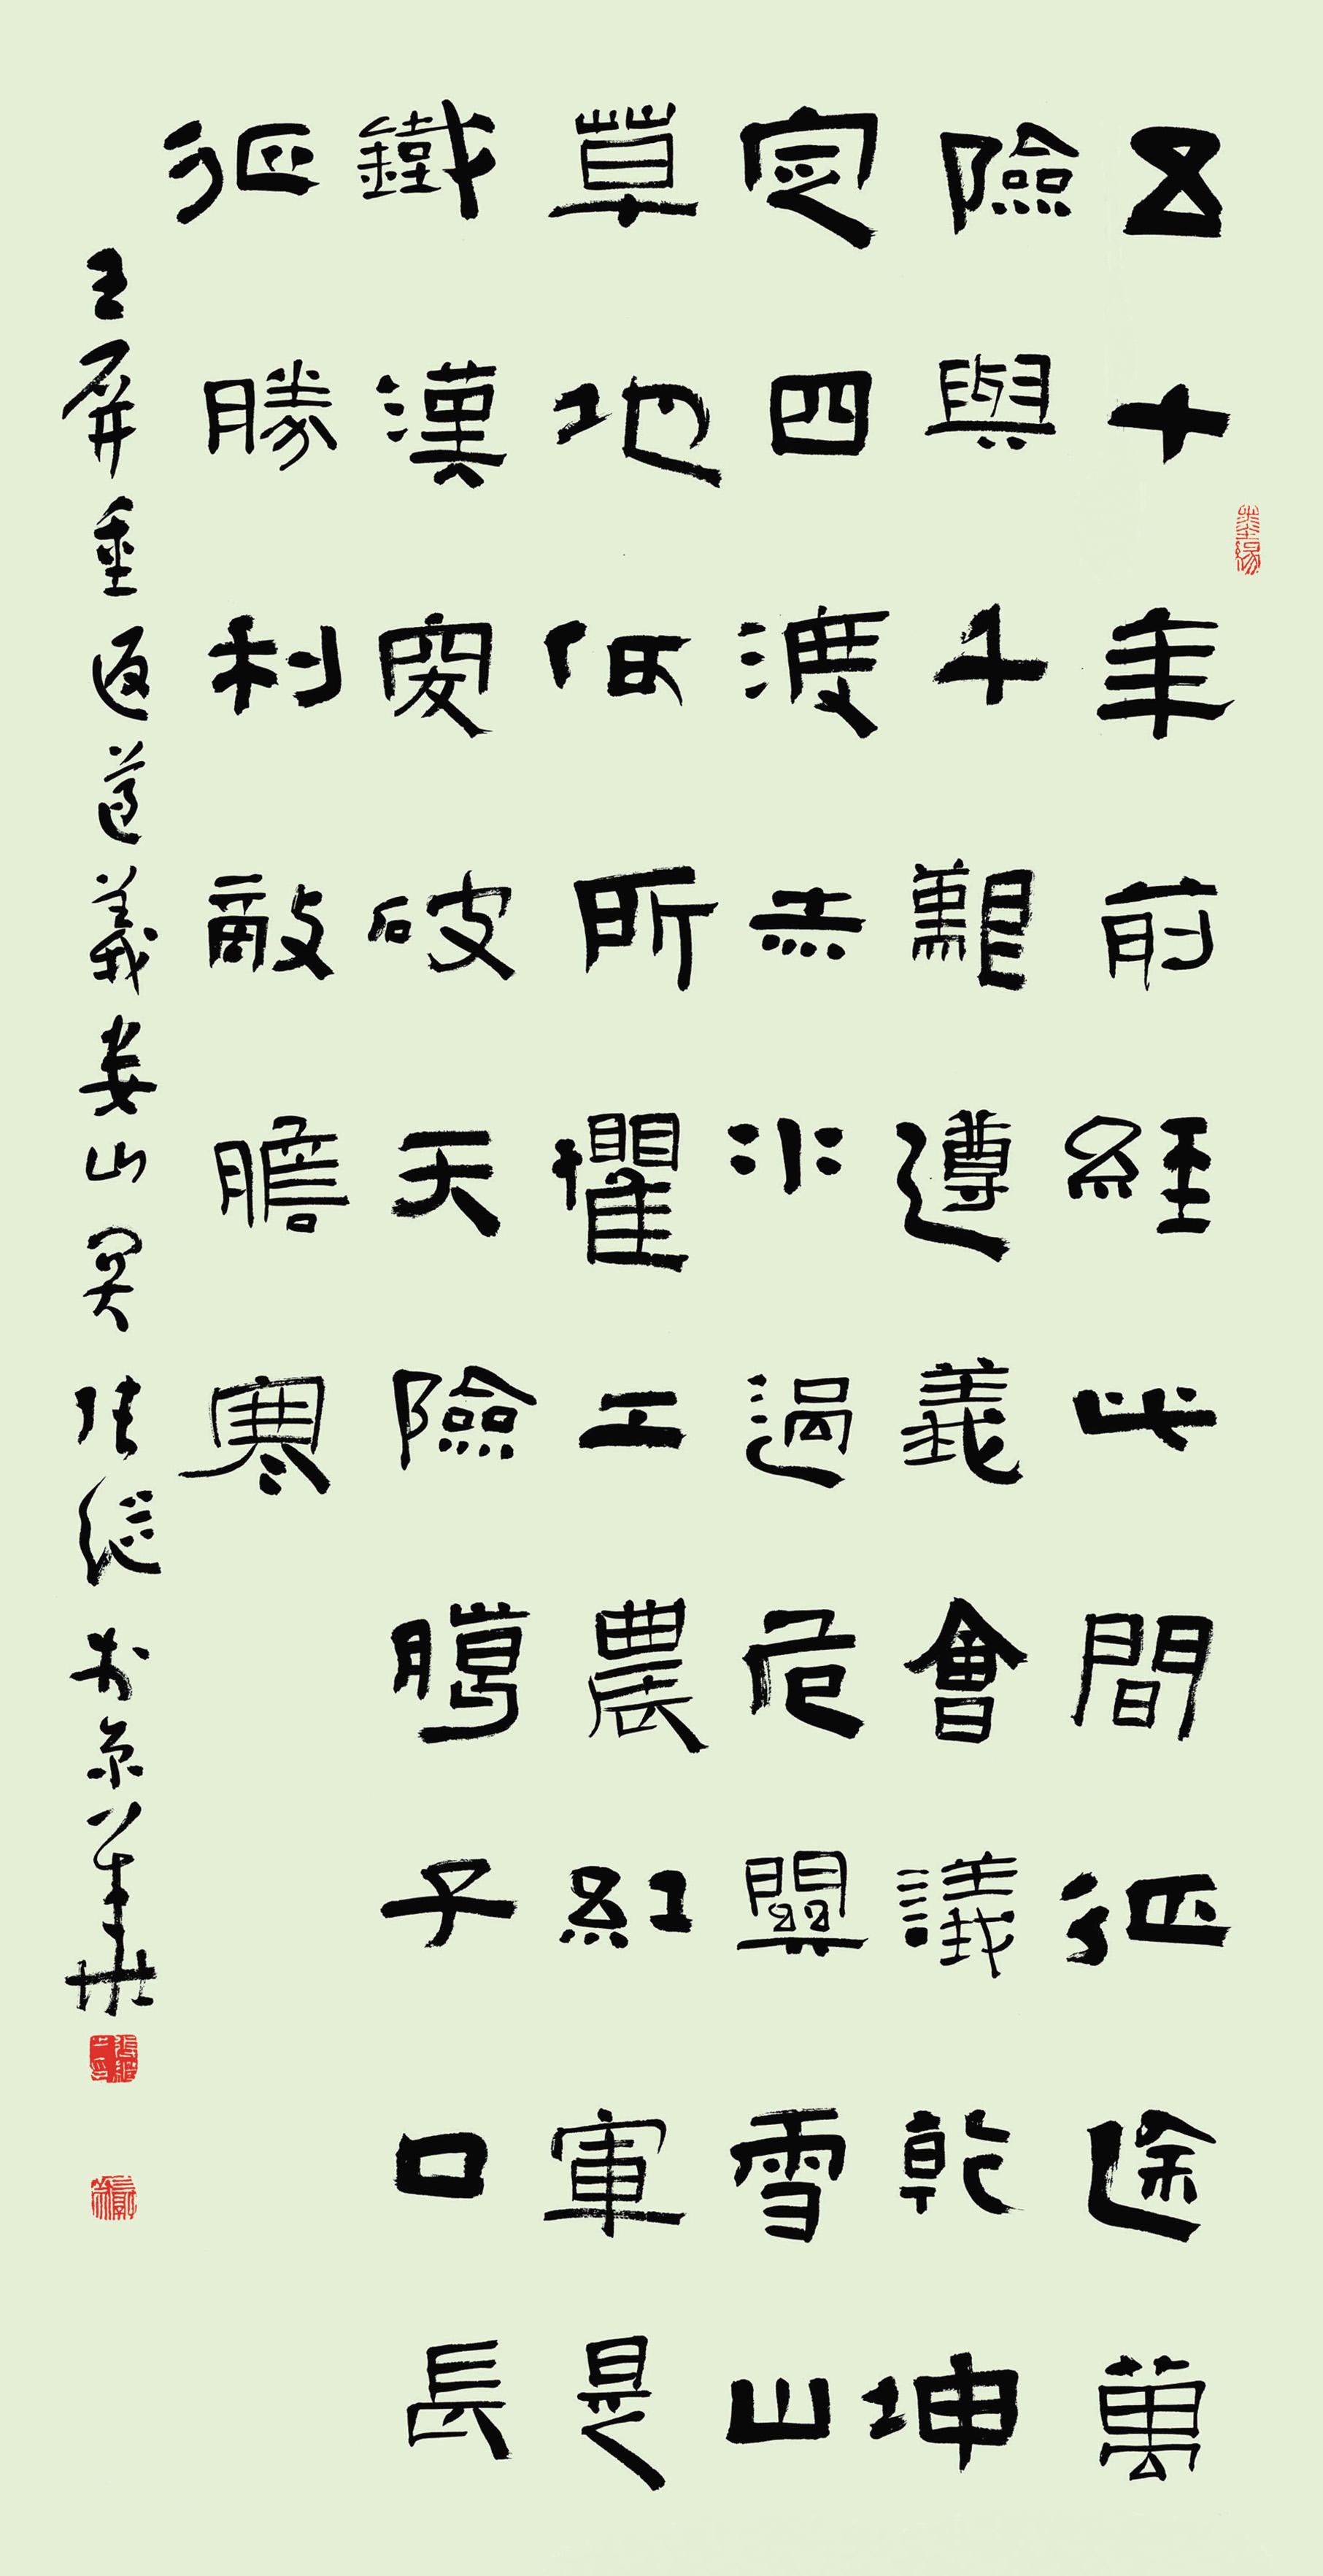 五十年前經此間征途萬
險與千難遵義會議乾坤
定四渡赤水過危關雪山
草地何所懼工農紅軍是
鐵漢突破天險臈子口長
征勝利敵膽寒
王屏重返遵義婁山关 張継於京華